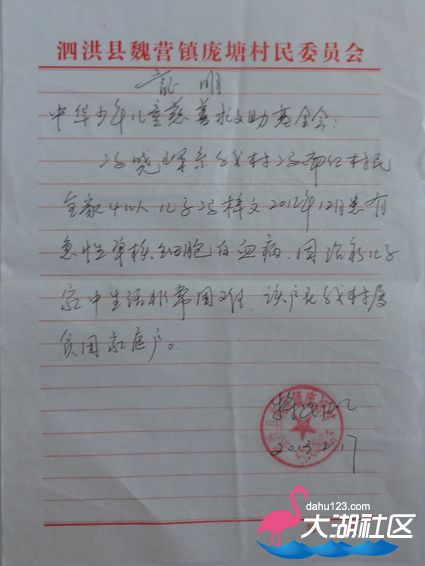 泗洪县魏营镇庞塘村民委员会
证明
中华少年儿童慈善求文助基金会：
冯晓峰系我村冯南组村民
全家4口人儿子冯梓文2012年12月患有
急性单核细胞白血病、因治疗儿子
家中生活非常困难、该户在我村属
贫困家庭户。
2013.2.17
dahu123.com
大湖社区